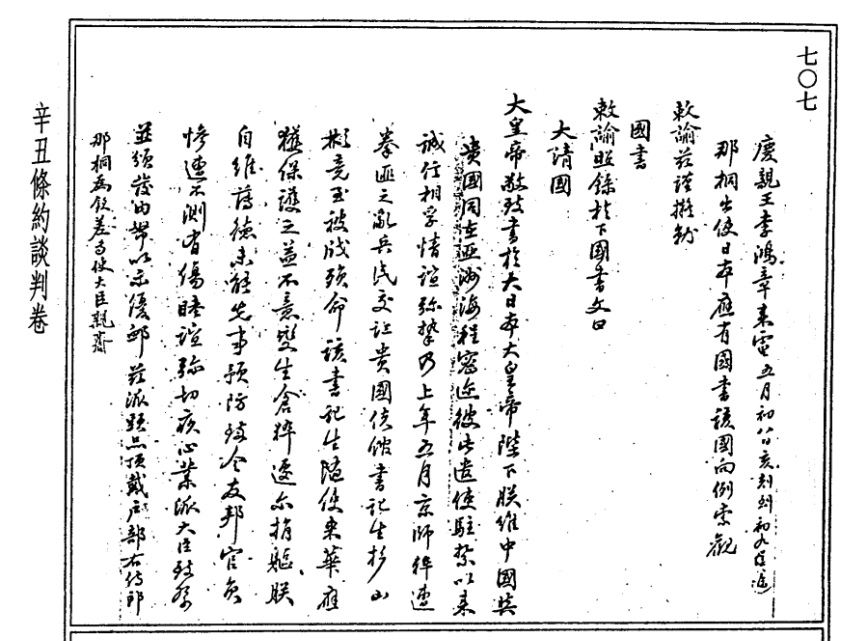 七〇七
慶親王李鴻章來電五月初八日亥刻到初九日遞
那桐出使日本應有國書該國向例索觀
敕諭茲謹擬就
國書
敕諭照錄於下國書文曰
大清國
大皇帝敬致書於大日本大皇帝陛下朕維中國與
貴國同在亞洲海程密邇彼此遣使駐紮以來
誠信相孚情誼弥摯乃上年五月京師猝遭
拳匪之亂兵民交訌貴國使館書記生杉山
彬竟至被戕殞命該書記生隨使來華應
獲保護之益不意變生倉猝遽尔捐軀朕
自維薄德未能先事預防致令友邦官員
慘遭不測有傷睦誼弥切疚心業派大臣致祭
並頒發內帑以示優卹茲派頭品頂戴戶部右侍郎
那桐為欽差專使大臣親齎
辛丑條約談判卷